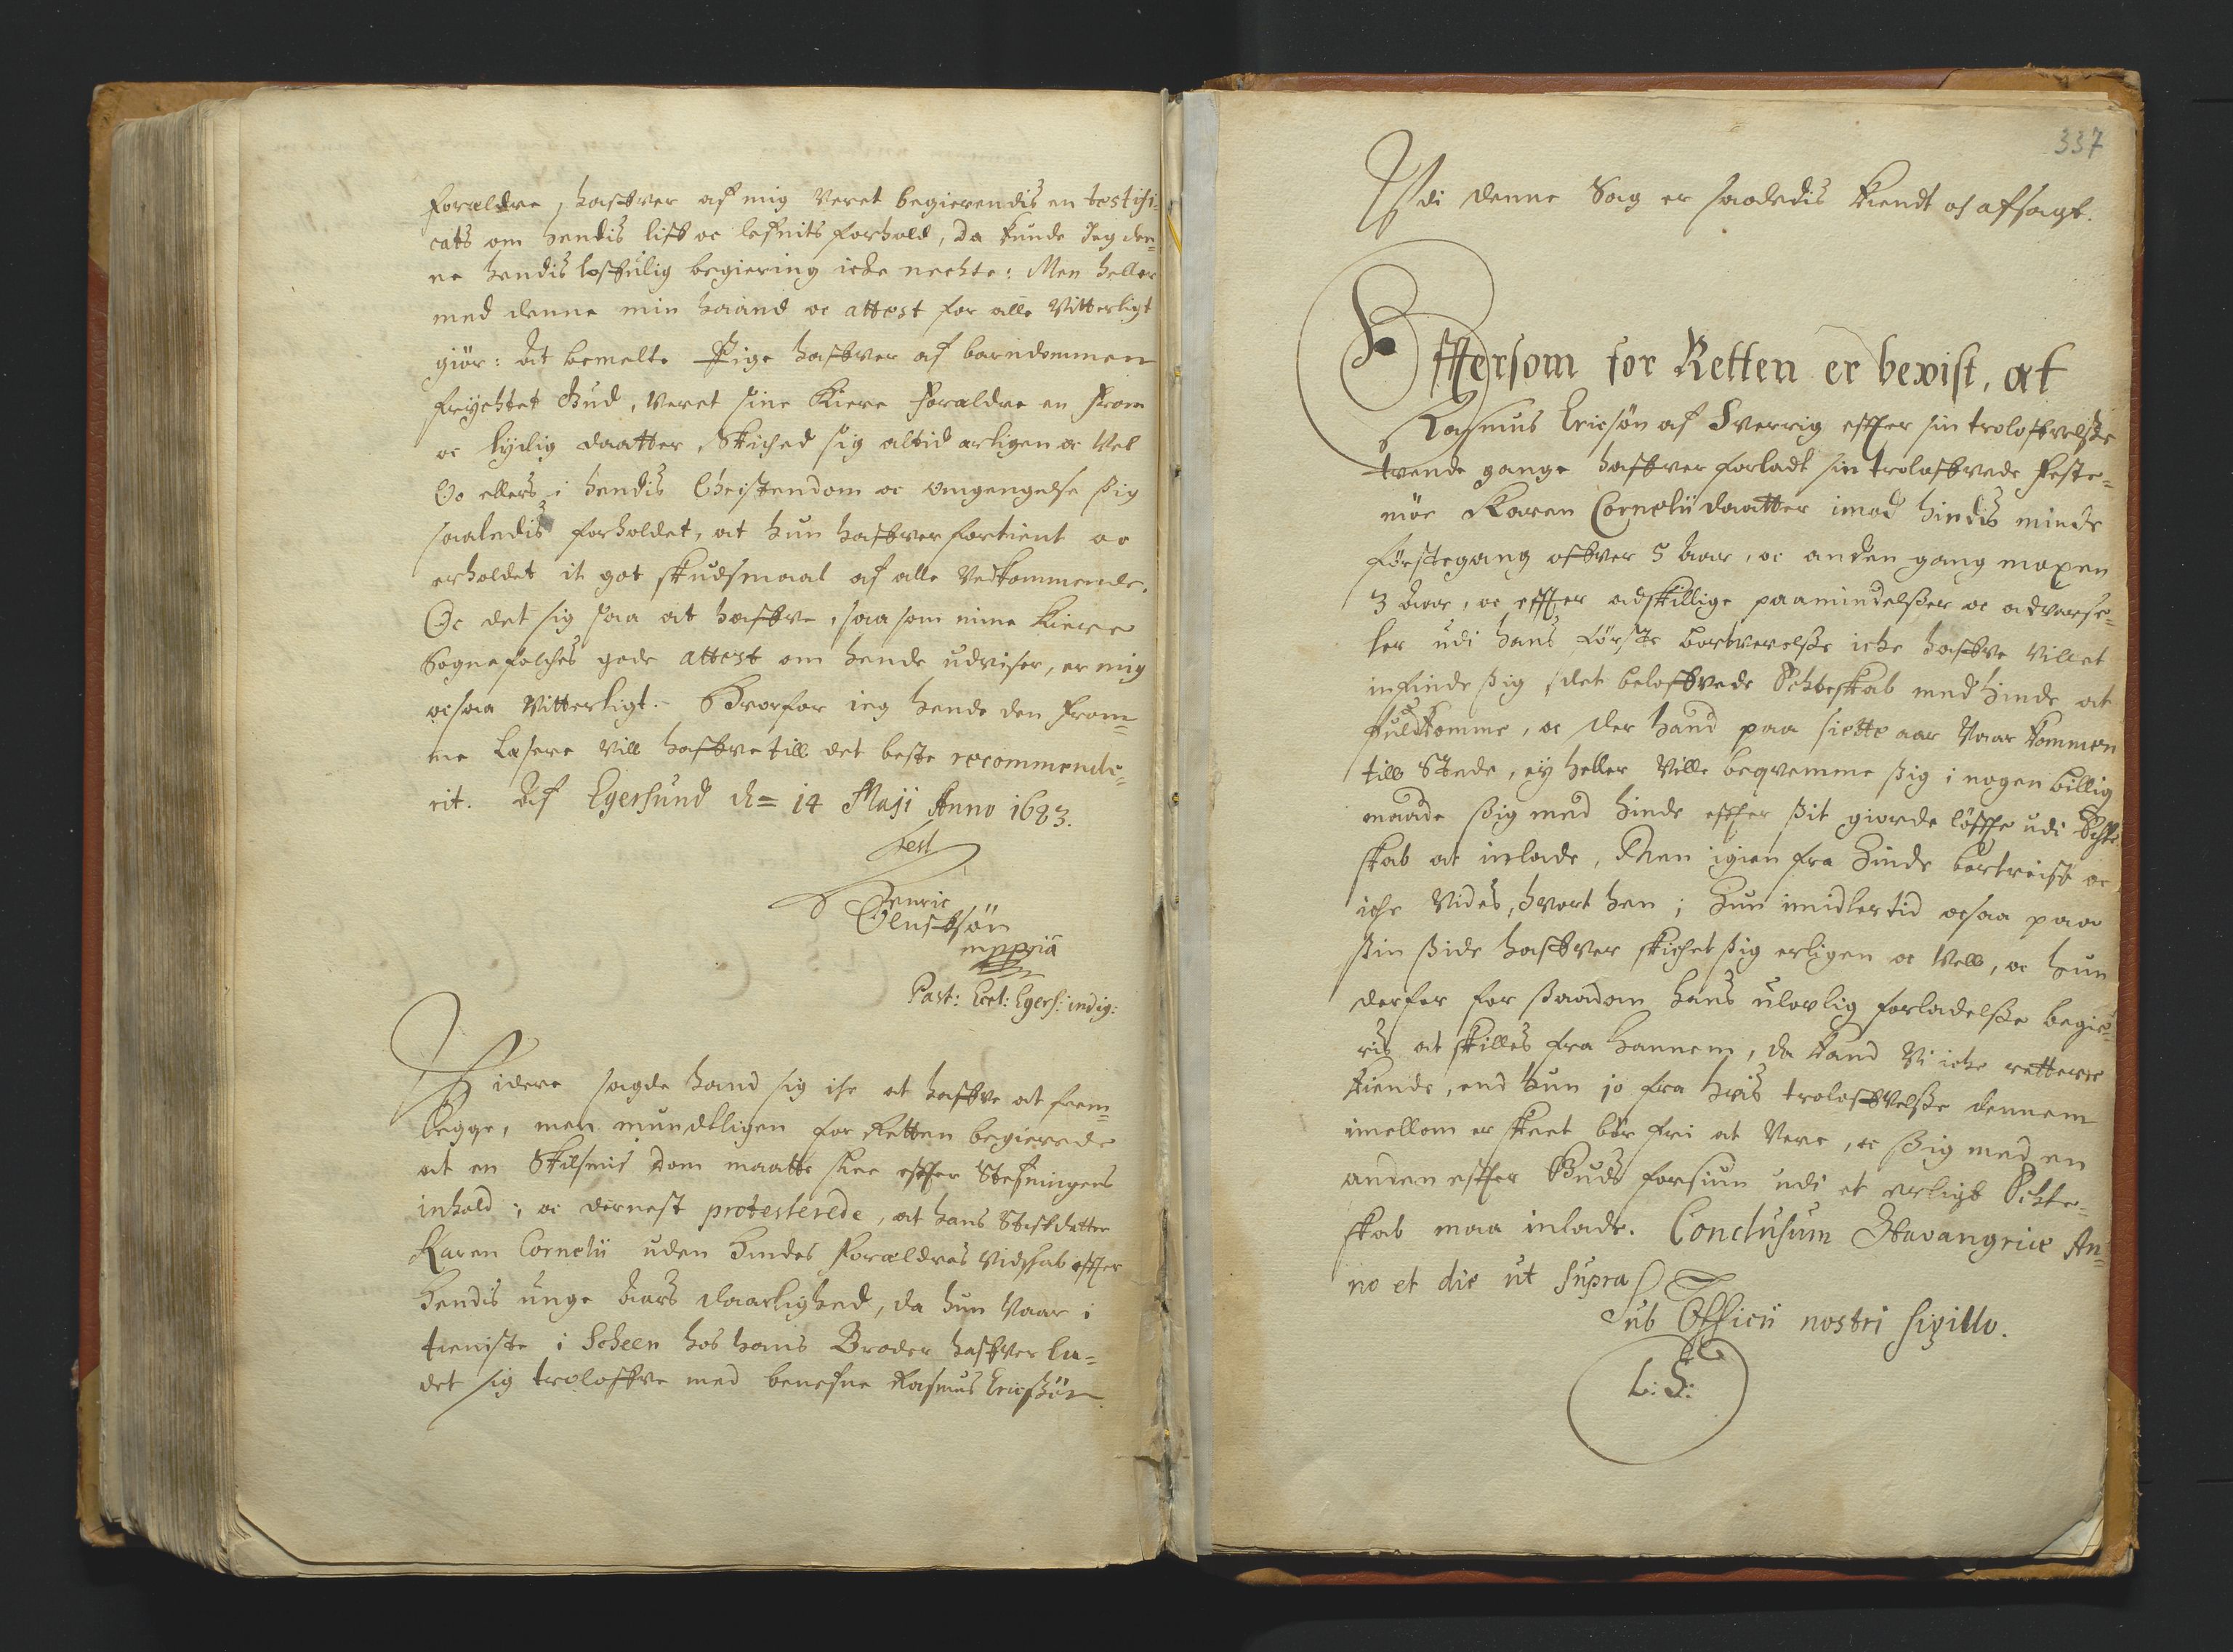 Forældre, haffver af mig veret begierendis en testifi-
cats om hendis liff oc lefnits forhold, da kunde Jeg den-
ne hendis loffulig begiering icke nechte: Men heller
med denne min haand oc attest for alle vitterligt
giör: at bemelte Pige haffver af barndommen
frychtet Gud, veret sine kiere Forældre en from
oc lydig daatter, skiched sig altid ærligen oc vel
Oc ellers i hendis Christendom oc omgengelse sig
saaledis forholdet, at hun haffver fortient oc
erholdet it got skudsmaal af alle vedkommende.
Oc det sig saa at haffve, saa som mine kiere
Sognefolches gode attest om hende udviser, er mig
ocsaa vitterligt. Hvorfor ieg hende den from-
me Læsere vill haffve till det beste recommende-
rit. Af Egersund d= 14 Maji Anno 1683.
test
Henric
Oluffsön
mppriā
Past: Eccl: Egers: indig:
Videre sagde hand sig iche at haffve at frem-
legge, men mundtligen for Retten begierede
at en Skilsmis dom maatte skee effter Stefningens
inhold; oc dernest protesterede, at hans Stifdatter
Karen Cornelii uden hindes Forældres vidskab effter
hendis unge Aars daarlighed, da hun vaar i
tieniste i Scheen hos hans Broder haffver la-
det sig troloffve med benefne Rasmus Ericssön.
337
Udi denne Sag er saaledis kiendt oc afsagt.
Efftersom for Retten er bevist, at
Rasmus Ericsön af Sverrig effter sin troloffvelsse
tvende gange haffver forladt sin troloffvede Feste-
möe Karen Cornelii daatter imod hindis minde
förstegang offver 5 Aar, oc anden gang moxen
3 Aar, oc effter adskillige paamindelsser oc advarse-
ler udi hans förste bortverelsse icke haffve villet
infinde ssig det beloffvede Echteskab med hinde at
fuldkomme, oc der hand paa siette aar vaar kommen
till Stede, ey heller ville beqvemme ssig i nogen billig
maade ssig med hinde effter ssit giorde löffte udi Echte
skab at inlade, Men igien fra hinde bortreist oc
iche vides, hvort hen; hun imidlertid ocsaa paa
ssin sside haffver skichet ssig erligen oc vell, oc hun
derfor for ssaadan hans ulovlig forladelsse begie-
ris at skilles fra hannem, da kand vi icke rettere
kiende, end hun jo fra hvis troloffvelsse dennem
imellom er skeet bör fri at vere, oc ssig med en
anden effter Guds forsiun udi et ærligt Echte-
skab maa inlade. Conclusum Stavangriæ An-
no et die ut supra
Sub Officii nostri sigillo.
L: S: